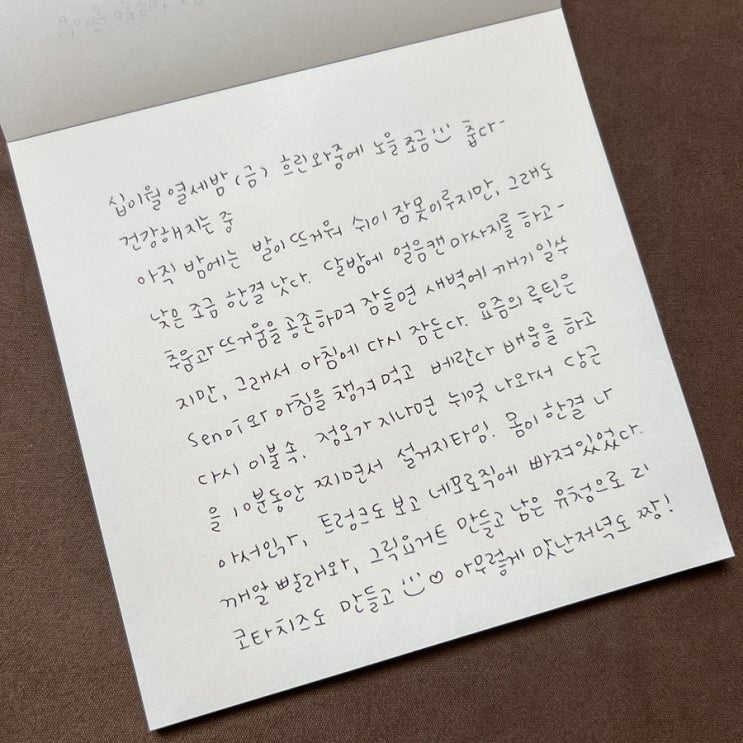 십이월 열세밤 (금) 흐린와중에 노을 조금 춥다-
건강해지는 중
아직 밤에는 발이 뜨거워 쉬이 잠못이루지만, 그래도
낮은 조금 한결 낫다. 달밤에 얼음캔 마사지를 하고-
추움과 뜨거움을 공존하며 잠들면 새벽에 깨기 일쑤
지만, 그래서 아침에 다시 잠든다. 요즘의 루틴은
Senoi와 아침을 챙겨먹고 베란다 배웅을 하고
다시 이불속. 정오가 지나면 뉘엿 나와서 당근
을 10분동안 찌면서 설거지타임. 몸이 한결 나
아서인가, 트렁크도 보고 네모로직에 빠져있었다.
깨알 빨래와, 그릭요거트 만들고 남은 유청으로 리
코타치즈도 만들고 ♡ 아무렇게 맛난저녁도 짱!